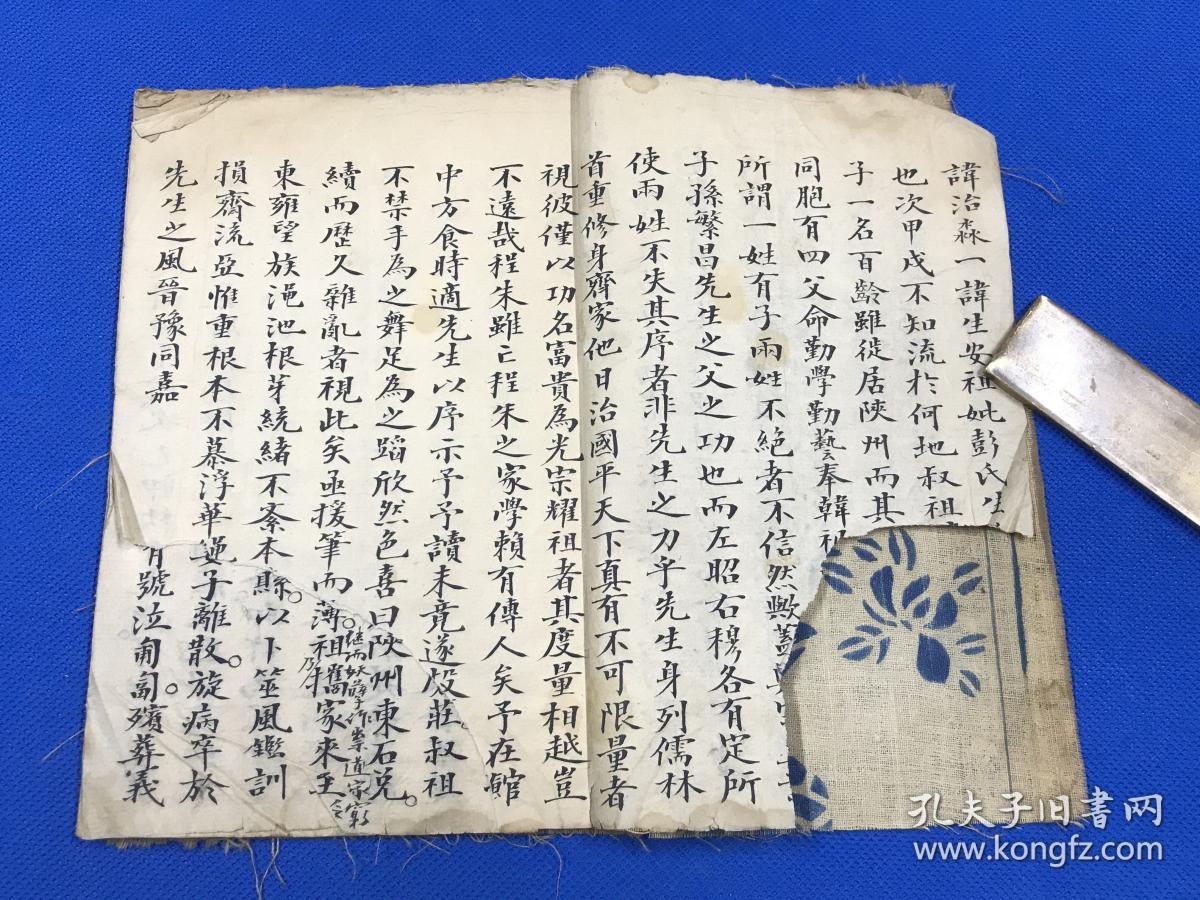 諱治淼一諱生安祖妣彭氏生
也次甲戌不知流於何地叔祖
子一名百齡雖徙居陝州而其
同胞有四父命勤學勤藝奉韓祖
所謂一姓有子兩姓不絕者不信然歟蓋
子孫繁昌先生之父之功也而左昭右穆各有定所
使兩姓不失其序者非先生之力乎先生身列儒林
首重修身齊家他日治國平天下真有不可限量者
視彼僅以功名富貴為光宗耀祖者其度量相越豈
不遠哉程朱雖亡程朱之家學賴有傳人矣予在館
中方食時適先生以序示予予讀未竟遂殷莊叔祖
不禁手為之舞足為之蹈欣然色喜曰陝州東石兌。
續而歷久雜亂者視此矣亟援筆而薄祖舊家來至
继而妖孽作祟道家窮
東雍望族澠池根芽統緒不紊本縣。以卜筮風鑑訓
損齊流亞惟重根本不慕浮華子離散。旋病卒於
先生之風晉豫同嘉有號泣匍匐。殯葬義
孔夫子旧书网
www.kongfz.com